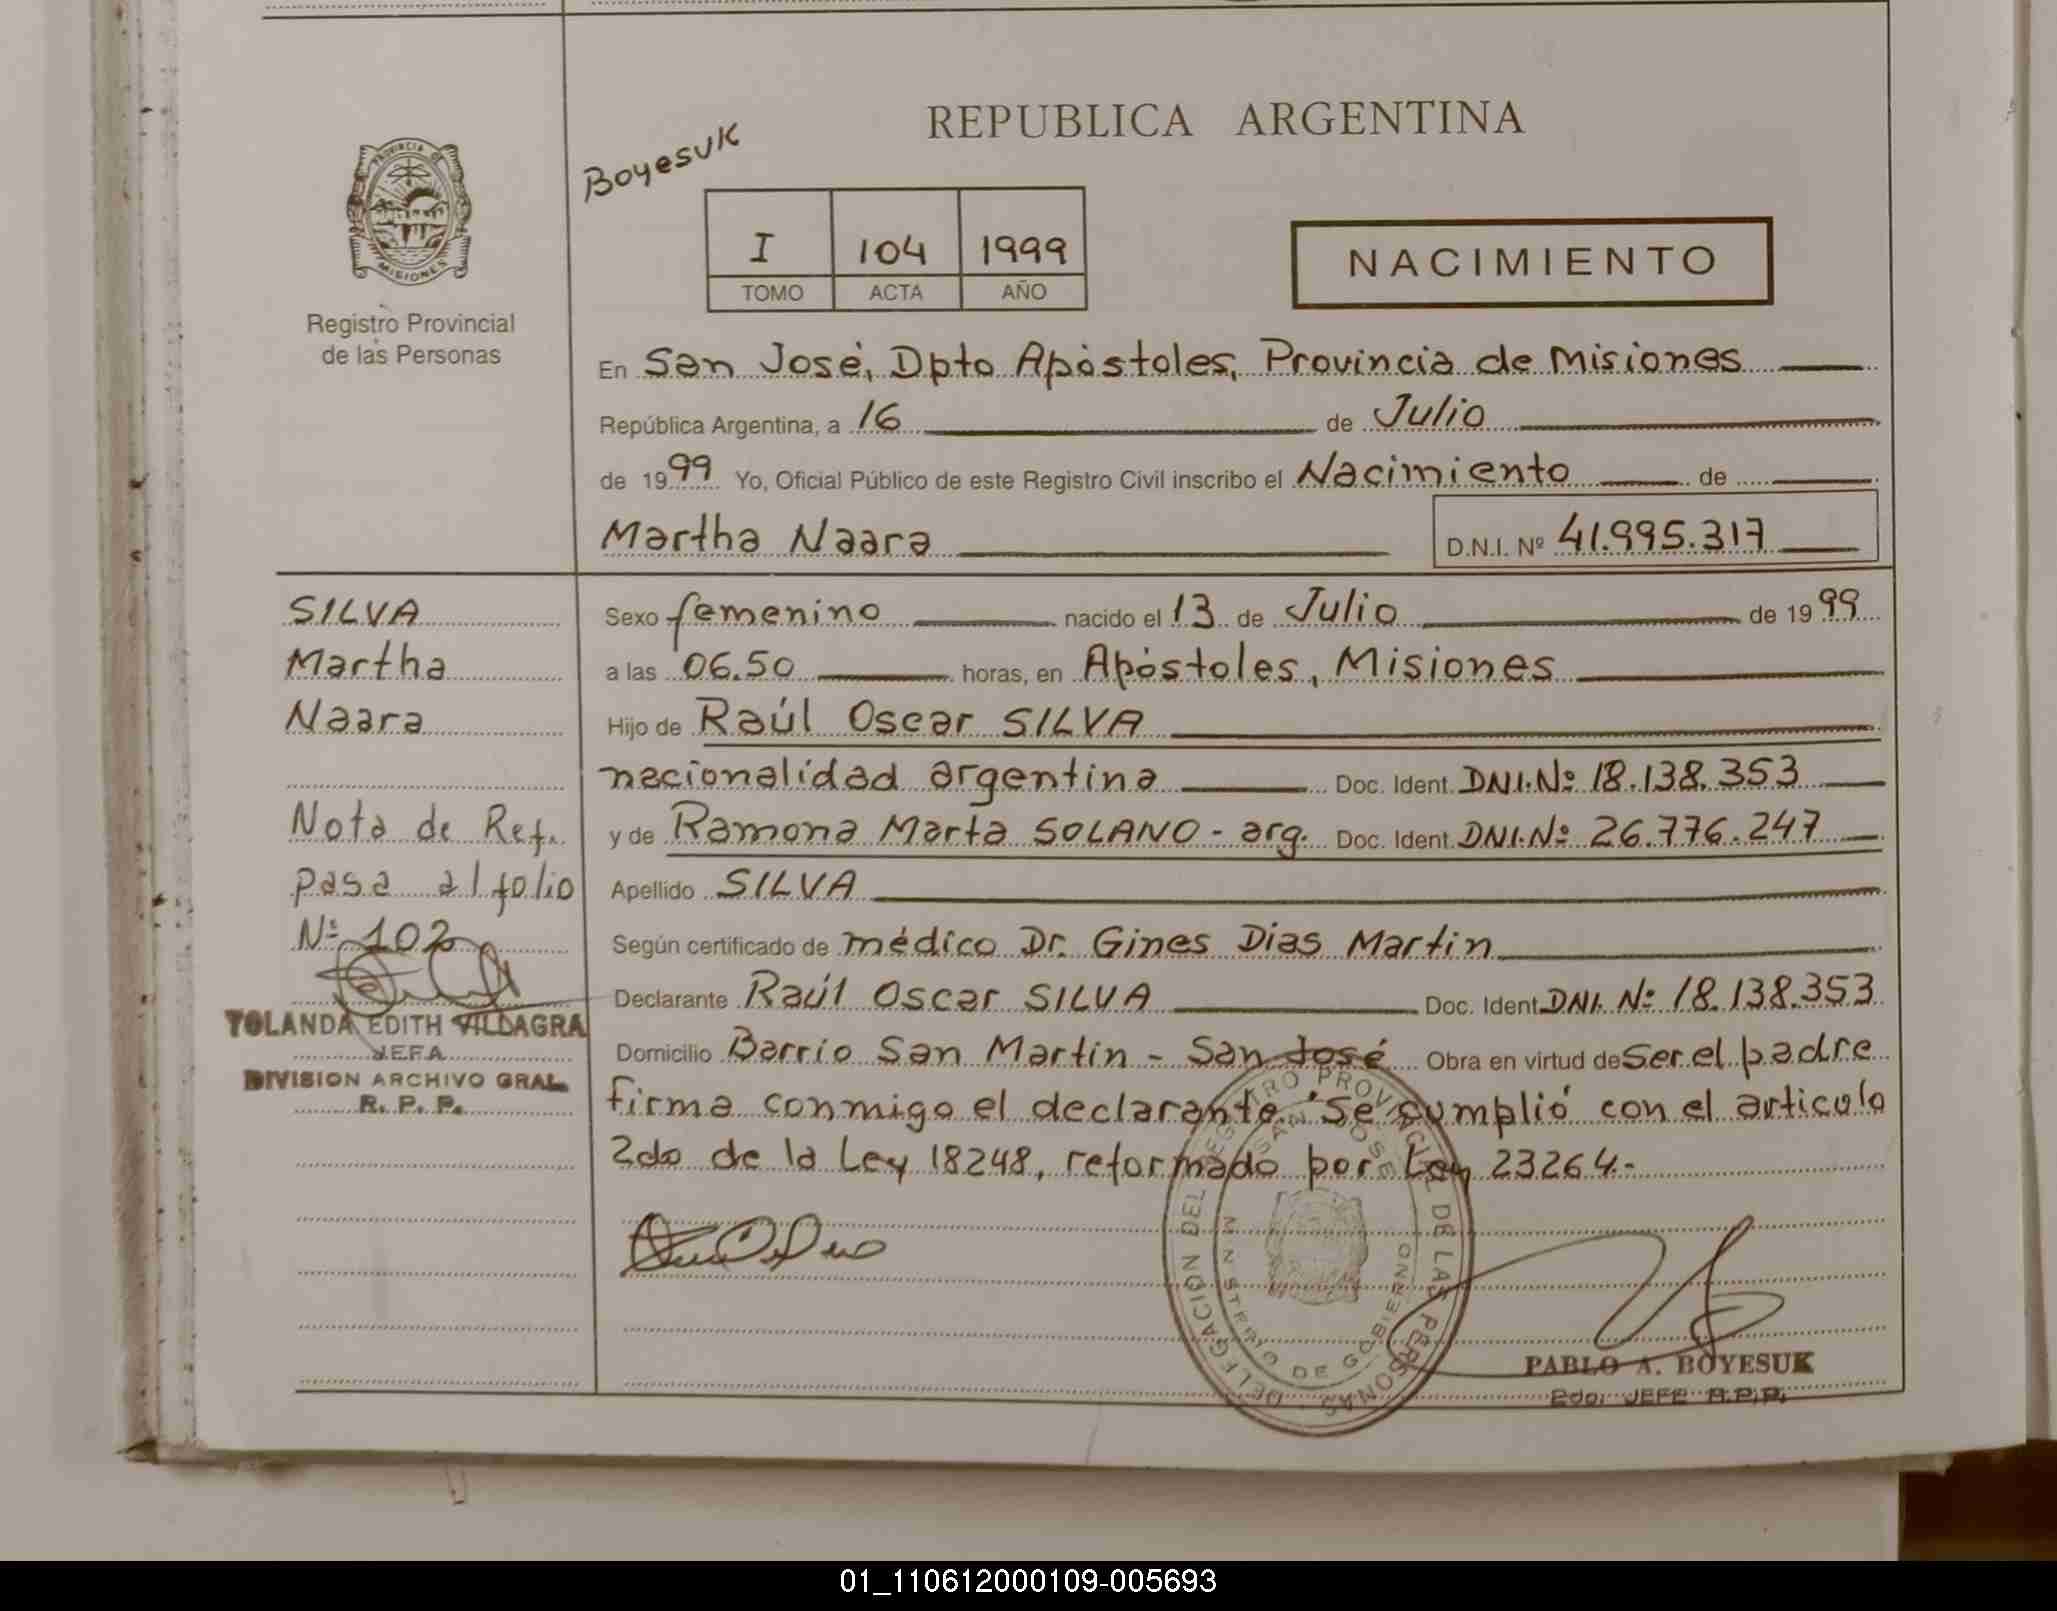 REPUBLICA ARGENTINA
Boyesuk
PROVINCIA DE
MISIONES
Registro Provincial
de las Personas
I 104 1999
TOMO ACTA AÑO
NACIMIENTO
En San José, Dpto Apóstoles, Provincia de Misiones
República Argentina, a 16 de Julio
de 1999 Yo, Oficial Público de este Registro Civil inscribo el Nacimiento de
Martha Naara D.N.I. Nº 41.995.317
SILVA
Martha
Naara
Nota de Ref.
pasa al folio
Nº 102
YOLANDA EDITH VILLAGRA
JEFA
DIVISION ARCHIVO GRAL.
R. P. P.
Sexo femenino nacido el 13 de Julio de 1999
a las 06.50 horas, en Apóstoles, Misiones
Hijo de Raúl Oscar SILVA
nacionalidad argentina Doc. Ident. DNI.Nº 18.138.353
y de Ramona Marta SOLANO - arg. Doc. Ident. DNI.Nº 26.776.247
Apellido SILVA
Según certificado de médico Dr. Gines Dias Martin
Declarante Raúl Oscar SILVA Doc. Ident. DNI. Nº 18.138.353
Domicilio Barrio San Martin - San José Obra en virtud de Ser el padre
firma conmigo el declarante. "Se cumplió" con el articulo
2do de la Ley 18248, reformado por Ley 23264.-
DELEGACION DEL REGISTRO PROVINCIAL DE LAS PERSONAS
SAN JOSE
MINISTERIO DE GOBIERNO
PABLO A. BOYESUK
2do. JEFE R.P.P.
01_110612000109-005693